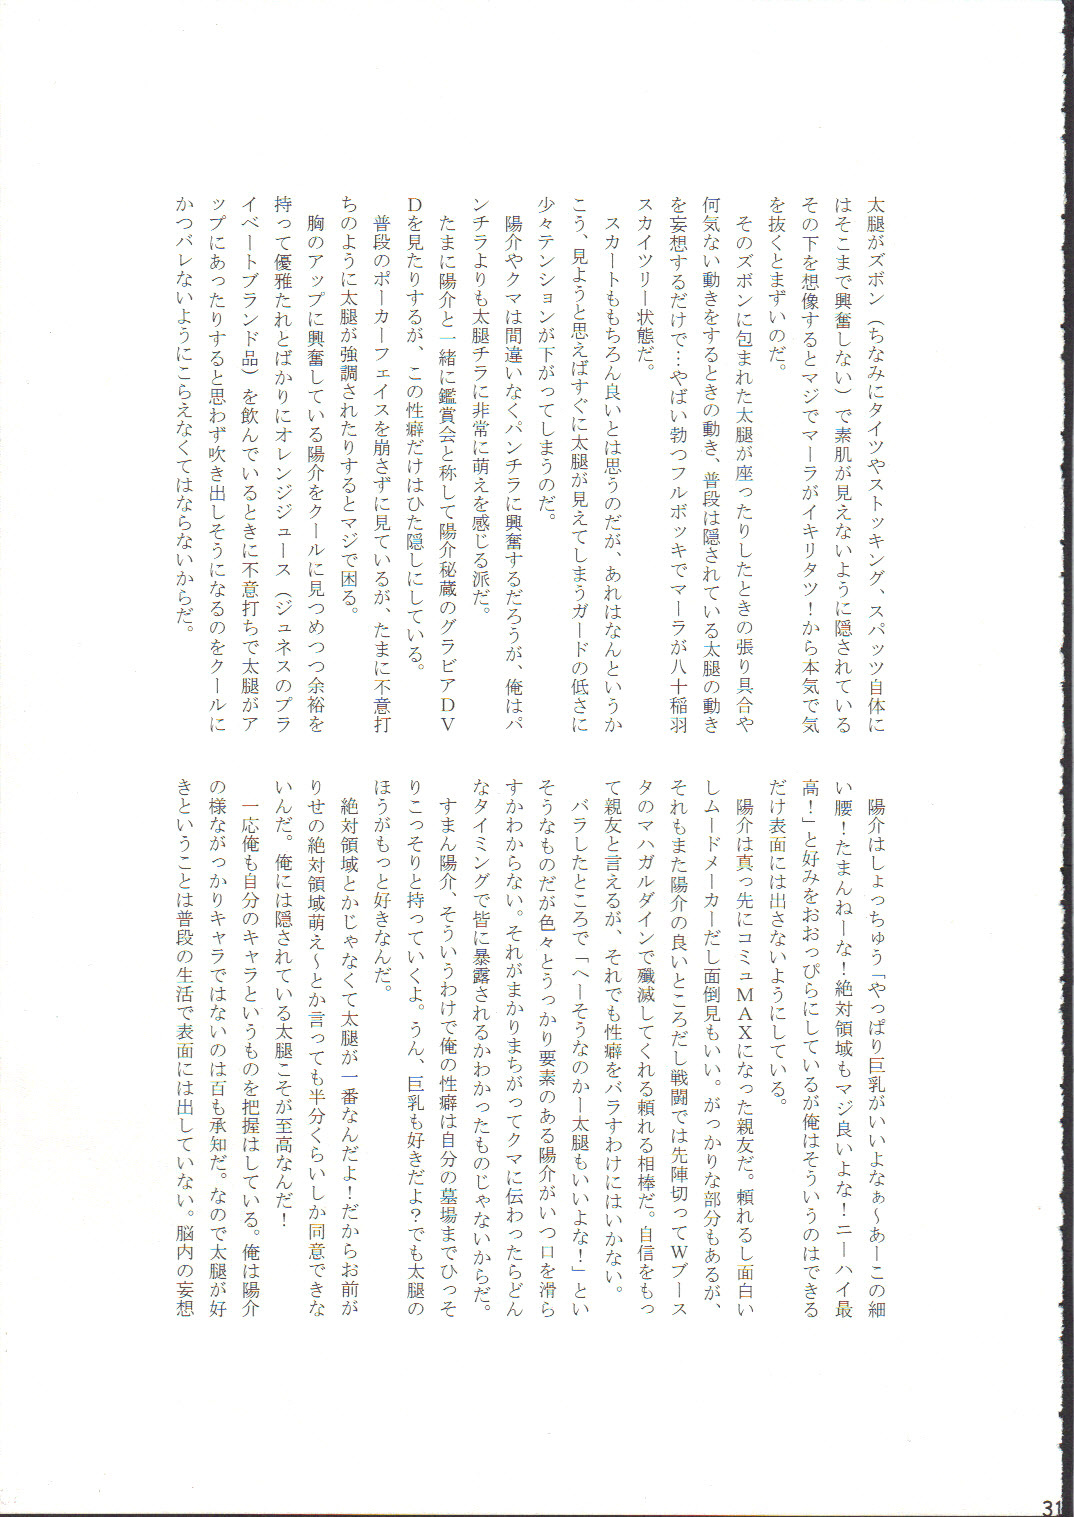 太腿がズボン（ちなみにタイツやストッキング、スパッツ自体に
はそこまで興奮しない）で素肌が見えないように隠されている
その下を想像するとマジでマーラがイキリタツ！から本気で気
を抜くとまずいのだ。
そのズボンに包まれた太腿が座ったりしたときの張り具合や
何気ない動きをするときの動き、普段は隠されている太腿の動き
を妄想するだけで…やばい勃つフルボッキでマーラが八十稲羽
スカイツリー状態だ。
スカートももちろん良いとは思うのだが、あれはなんというか
こう、見ようと思えばすぐに太腿が見えてしまうガードの低さに
少々テンションが下がってしまうのだ。
陽介やクマは間違いなくパンチラに興奮するだろうが、俺はパ
ンチラよりも太腿チラに非常に萌えを感じる派だ。
たまに陽介と一緒に鑑賞会と称して陽介秘蔵のグラビアＤＶ
Ｄを見たりするが、この性癖だけはひた隠しにしている。
普段のポーカーフェイスを崩さずに見ているが、たまに不意打
ちのように太腿が強調されたりするとマジで困る。
胸のアップに興奮している陽介をクールに見つめつつ余裕を
持って優雅たれとばかりにオレンジジュース（ジュネスのプラ
イベートブランド品）を飲んでいるときに不意打ちで太腿がア
ップにあったりすると思わず吹き出しそうになるのをクールに
かつバレないようにこらえなくてはならないからだ。
陽介はしょっちゅう「やっぱり巨乳がいいよなぁ～あーこの細
い腰！たまんねーな！絶対領域もマジ良いよな！ニーハイ最
高！」と好みをおおっぴらにしているが俺はそういうのはできる
だけ表面には出さないようにしている。
陽介は真っ先にコミュＭＡＸになった親友だ。頼れるし面白い
しムードメーカーだし面倒見もいい。がっかりな部分もあるが、
それもまた陽介の良いところだし戦闘では先陣切ってＷブース
タのマハガルダインで殲滅してくれる頼れる相棒だ。自信をもっ
て親友と言えるが、それでも性癖をバラすわけにはいかない。
バラしたところで「へーそうなのかー太腿もいいよな！」とい
そうなものだが色々とうっかり要素のある陽介がいつ口を滑ら
すかわからない。それがまかりまちがってクマに伝わったらどん
なタイミングで皆に暴露されるかわかったものじゃないからだ。
すまん陽介、そういうわけで俺の性癖は自分の墓場までひっそ
りこっそりと持っていくよ。うん、巨乳も好きだよ？でも太腿の
ほうがもっと好きなんだ。
絶対領域とかじゃなくて太腿が一番なんだよ！だからお前が
りせの絶対領域萌え～とか言っても半分くらいしか同意できな
いんだ。俺には隠されている太腿こそが至高なんだ！
一応俺も自分のキャラというものを把握はしている。俺は陽介
の様ながっかりキャラではないのは百も承知だ。なので太腿が好
きということは普段の生活で表面には出していない。脳内の妄想
31